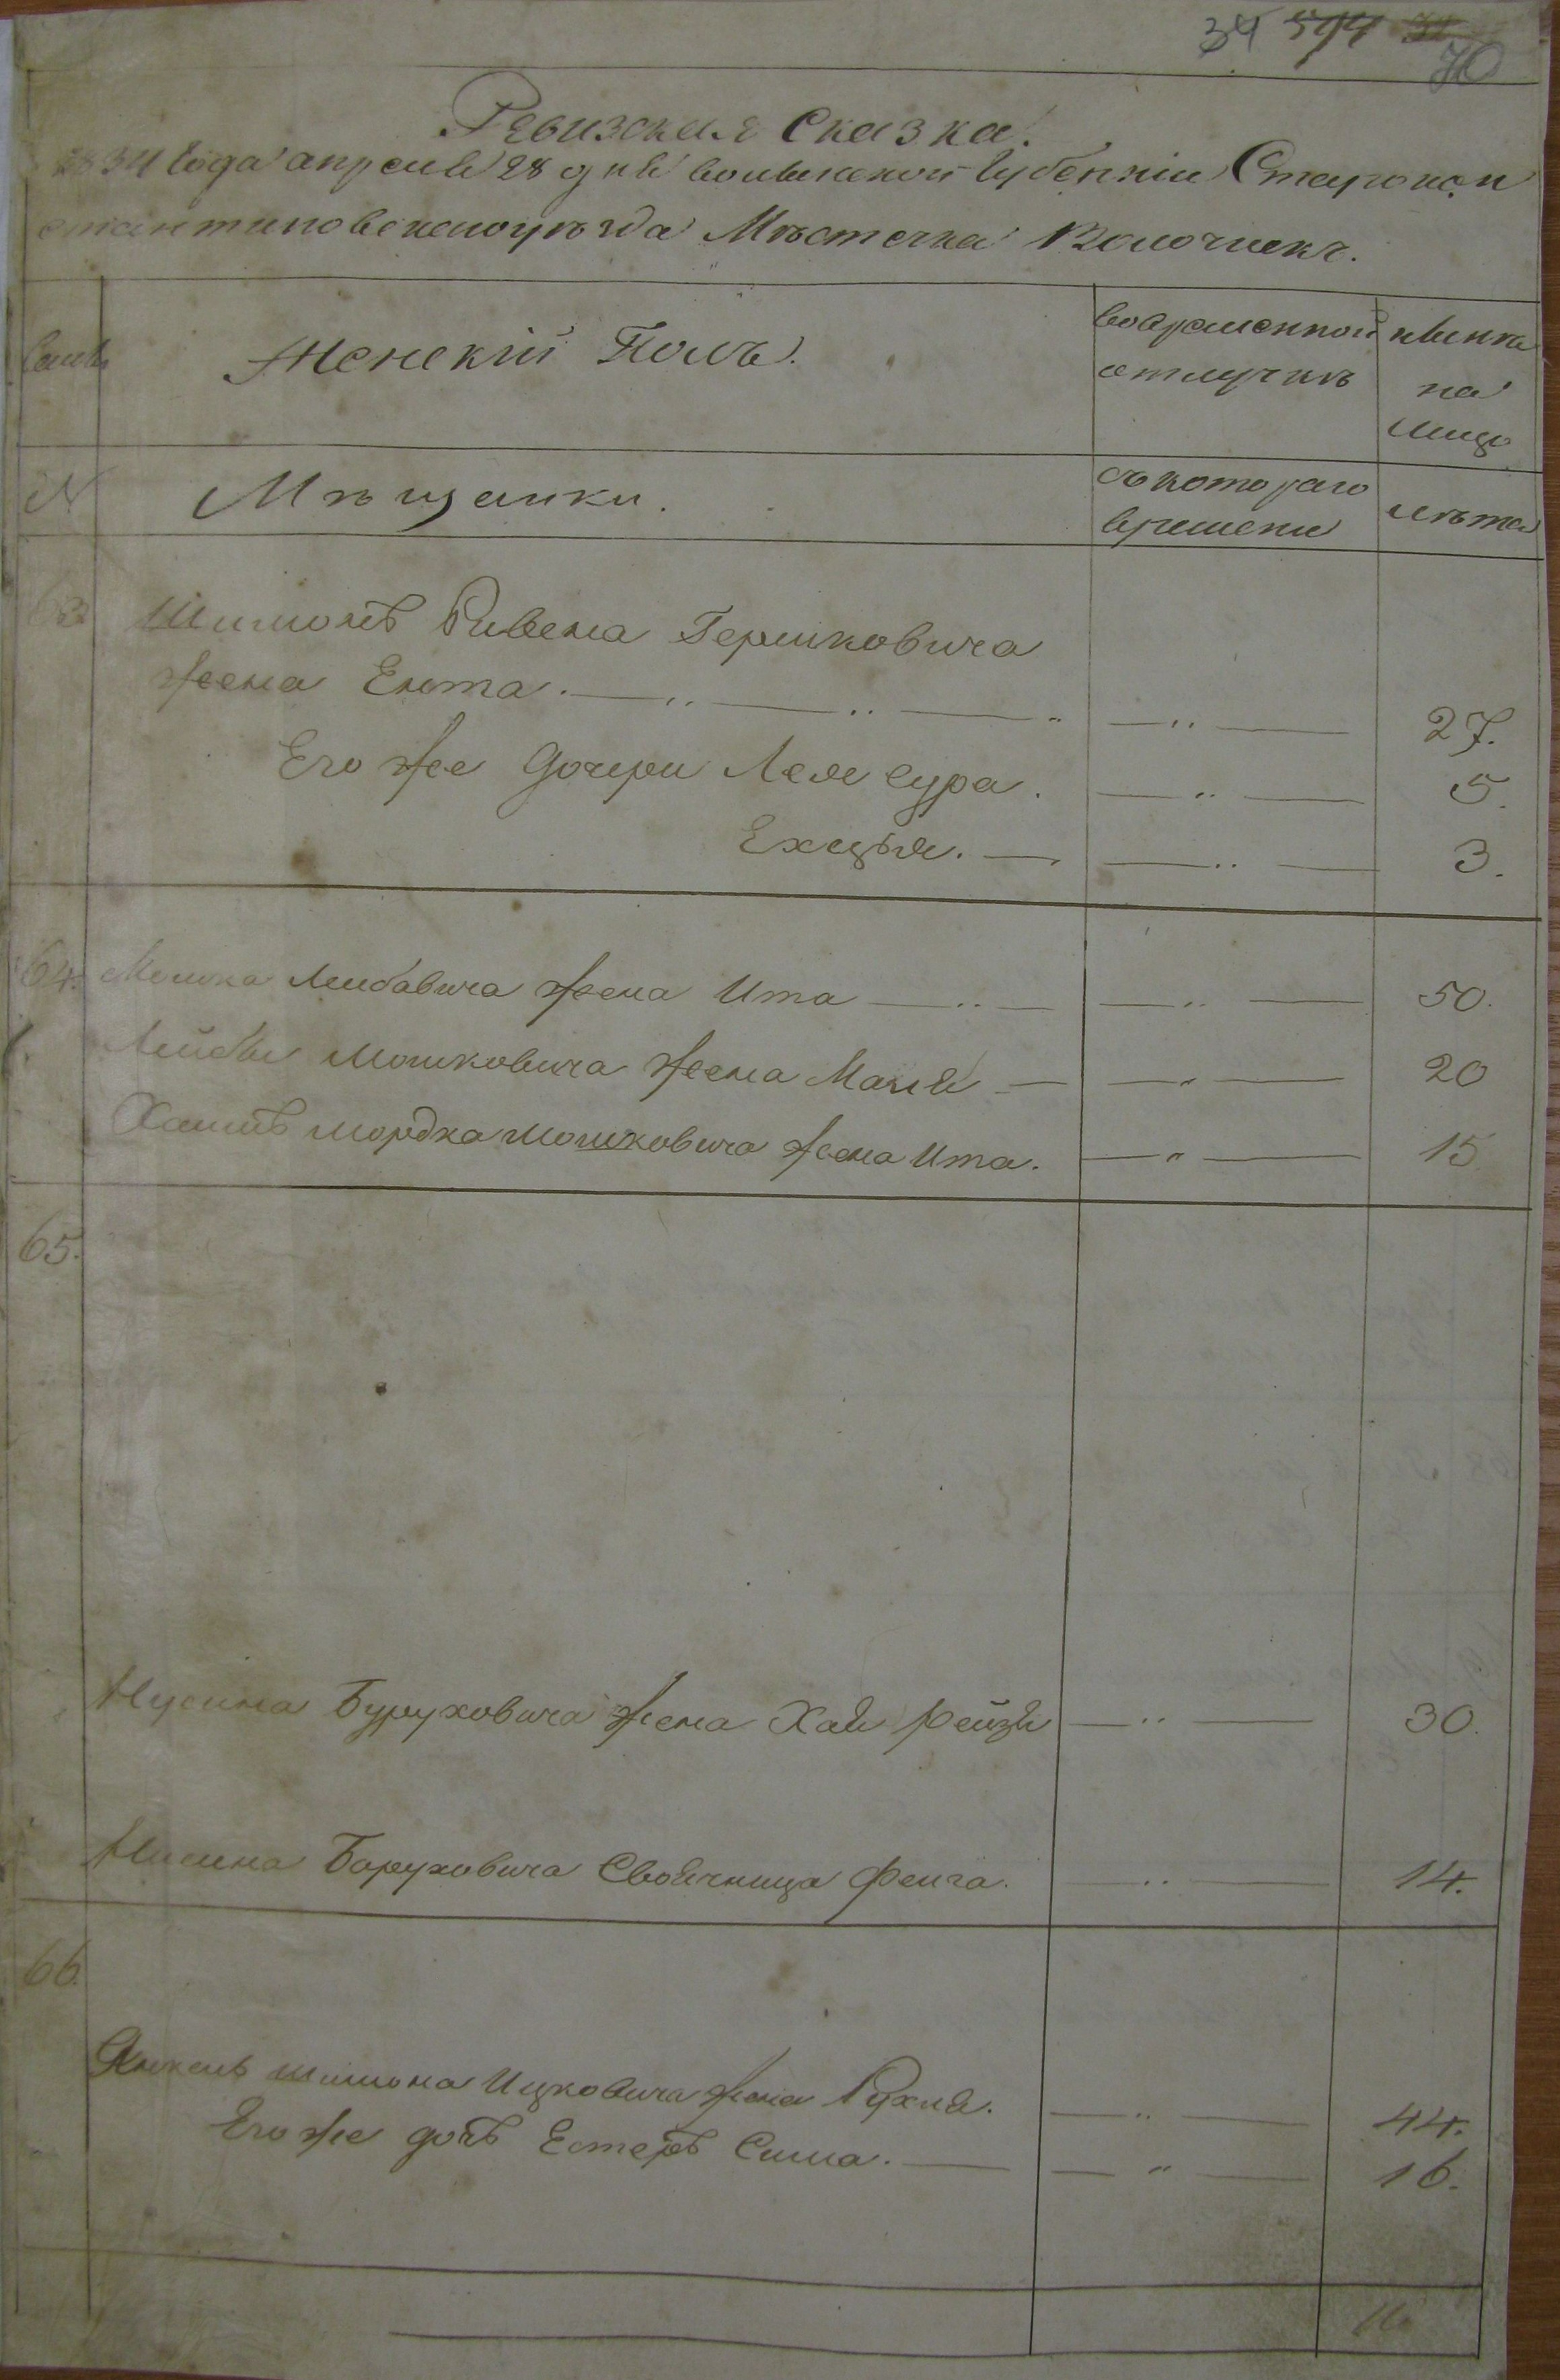 34 574
70
Ревизская Сказка.
1834 Года апреля 28 дня волынской Губернiи Старокон
стантиновскаго уѣзда Мѣстечка Волочискъ.
Семьи Женскiй Полъ. во временной нынѣ
отлучкѣ на
лицо
N Мѣщанки. съ котораго лѣта
времени
63 Шимонъ Ривена Гершковича
жена Ента. 27.
Его же дочери Лея сура. 5.
Ехецья. 3.
64. Мошка Лейбовича жена Ита 50.
Лейбы Мошковича жена Маля 20
Хаимъ Мордка Мошковича жена Ита. 15
65.
Нусина Буруховича жена Хая рейзя 30.
Нисина Боруховича Своячница Фейга. 14.
66.
Янкель Шимона Ицковича жена Рухля. 44.
Его же дочь Естеръ Сима. 16.